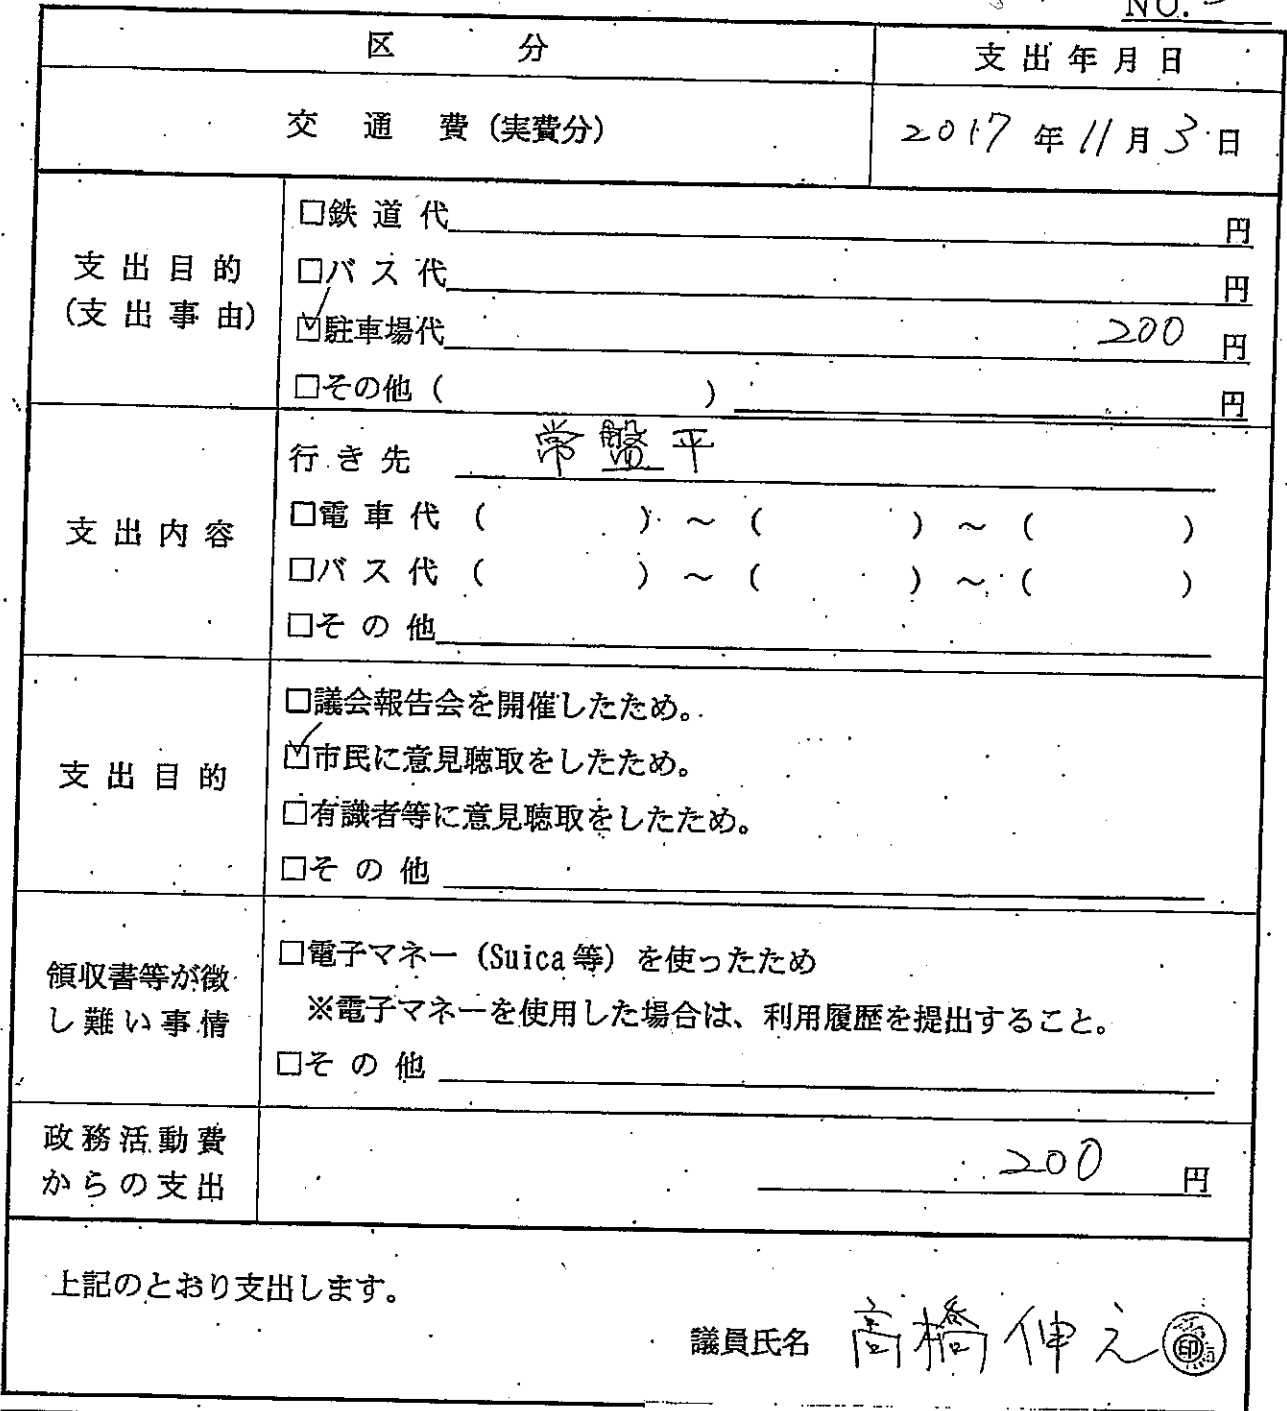 NO.
区 分
支出年月日
交通費(実費分)
2017年11月3日
支出目的
(支出事由)
□鉄道代 円
□バス代 円
☑駐車場代 200円
□その他( ) 円
支出内容
行き先 常盤平
□電車代( )~( )~( )
□バス代( )~( )~( )
□その他
支出目的
□議会報告会を開催したため。
☑市民に意見聴取をしたため。
□有識者等に意見聴取をしたため。
□その他
領収書等が徴
し難い事情
□電子マネー(Suica等)を使ったため
※電子マネーを使用した場合は、利用履歴を提出すること。
□その他
政務活動費
からの支出
200円
上記のとおり支出します。
議員氏名 高橋伸之 印